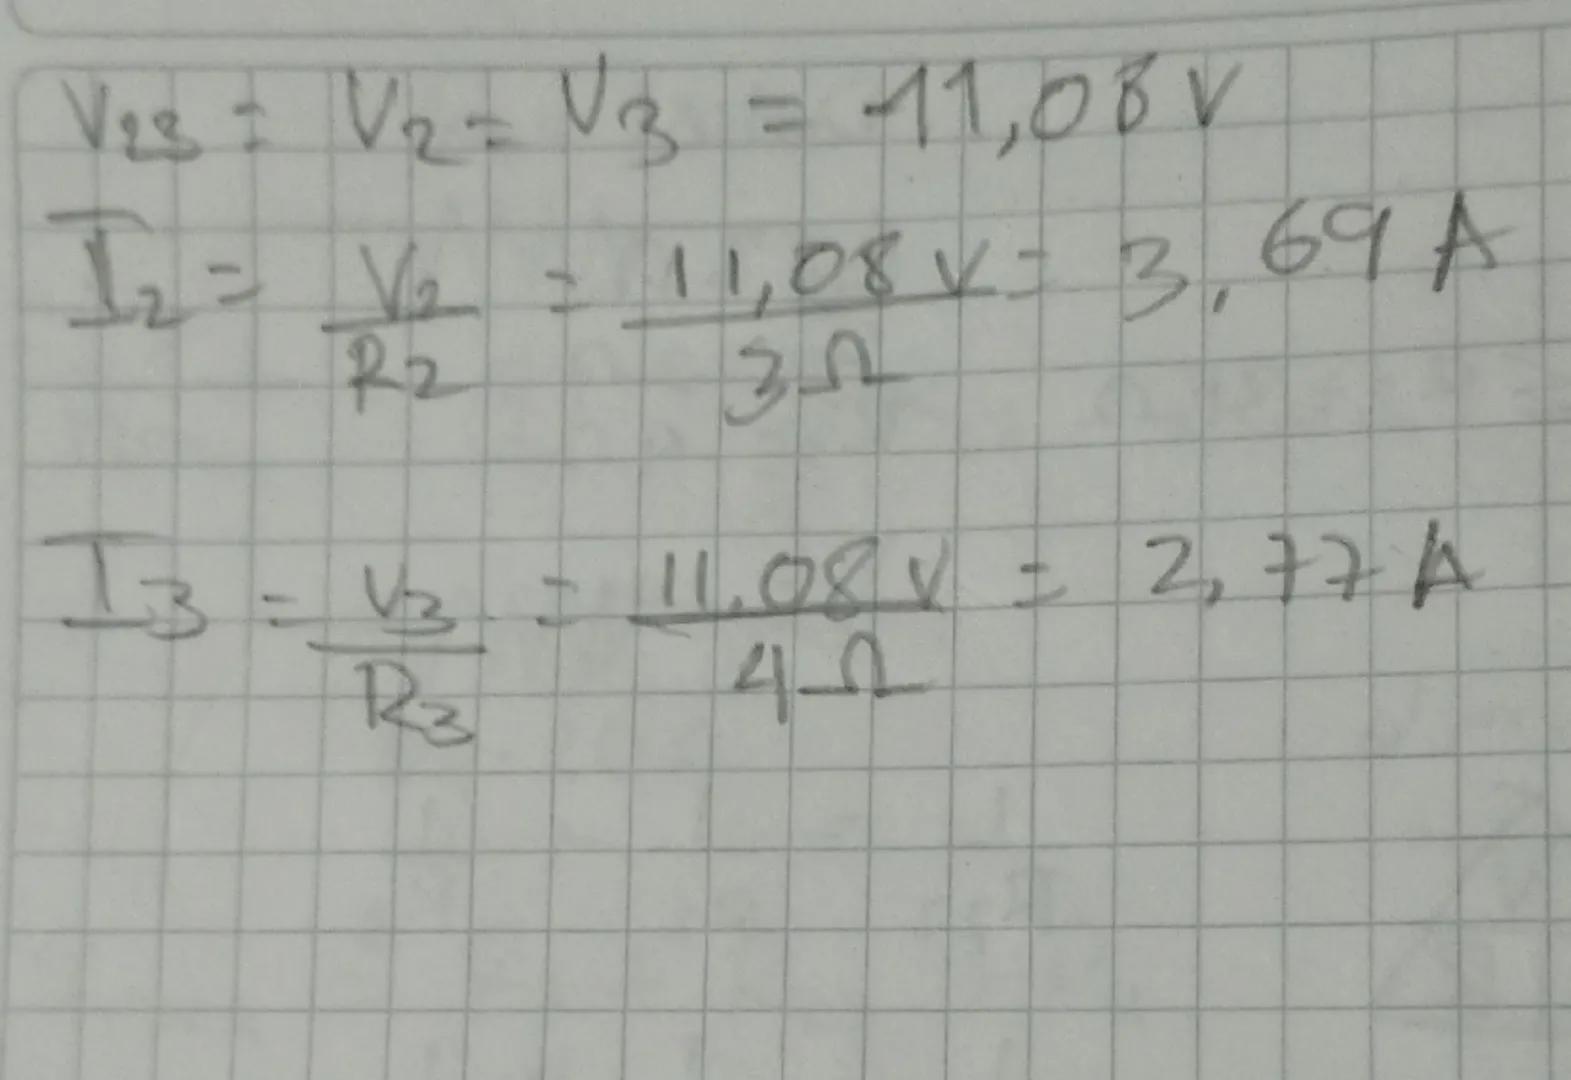 V₂₃ = V₂ = V₃ = 11,08 V
I₂ = V₂/R₂ = 11,08 V/3Ω = 3,69 A
I₃ = V₃/R₃ = 11,08 V/4Ω = 2,77 A